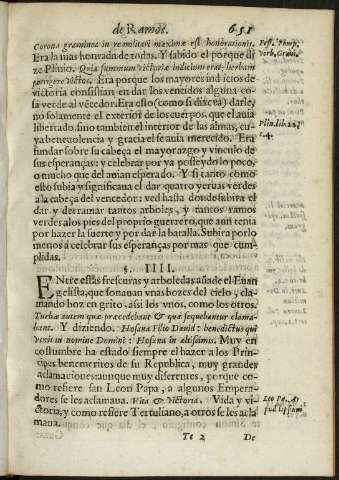 de Ramos. 651
Corona graminea in re militari maximæ est honorationis.
Era la mas honrada de todas. Y sabido el porque di
ze Plinio. Quia summum victoriæ indicium erat, herbam
porrigere victos. Era porque los mayores indicios de
victoria consistian en dar los vencidos alguna co-
sa verde al vẽcedor. Era esto (como si dixera) darle,
nó solamente el exterior de los cuerpos, que el auia
libertado, sino tambien el interior de las almas, cu-
ya beneuolencia y gracia el se auia merecido. Era
fundar sobre su cabeça el mayorazgo y vinculo de
sus esperanças: y celebrar por ya posseydo lo poco,
o mucho que del auian esperado. Y si tanto como
esto subia y significaua el dar quatro yeruas verdes
a la cabeça del vencedor: ved hasta donde subira el
dar y derramar tantos arboles, y tantos ramos
verdes a los pies del proprio guerrero, que aun tenia
por hazer la suerte y por dar la batalla. Subira por lo
menos a celebrar sus esperanças por mas que cum-
plidas.
§. IIII.
ENtre estas frescuras y arboledas añade el Euan
gelista, que sonauan vnas bozes del cielo, cla-
mando boz en grito, assi los vnos, como los otros.
Turbæ autem quæ præcedebant & quæ sequebantur clama-
bant. Y diziendo. Hosana Filio Dauid: benedictus qui
venit in nomine Domini: Hosana in altissimis. Muy en
costumbre ha estado siempre el hazer a los Prin-
cipes benemeritos de su Republica, muy grandes
aclamaciones: aunque muy diferentes, porque co-
mo refiere san Leon Papa, a algunos Empera-
dores se les aclamaua. Vita & victoria. Vida y vi-
ctoria, y como refiere Tertuliano, a otros se les acla
maua.
Tt 2 De
Pest. Pomp.
verb. Grami.
Plin. lib. 22.
c. 4.
Leo Pa. A-
pud Lipsium